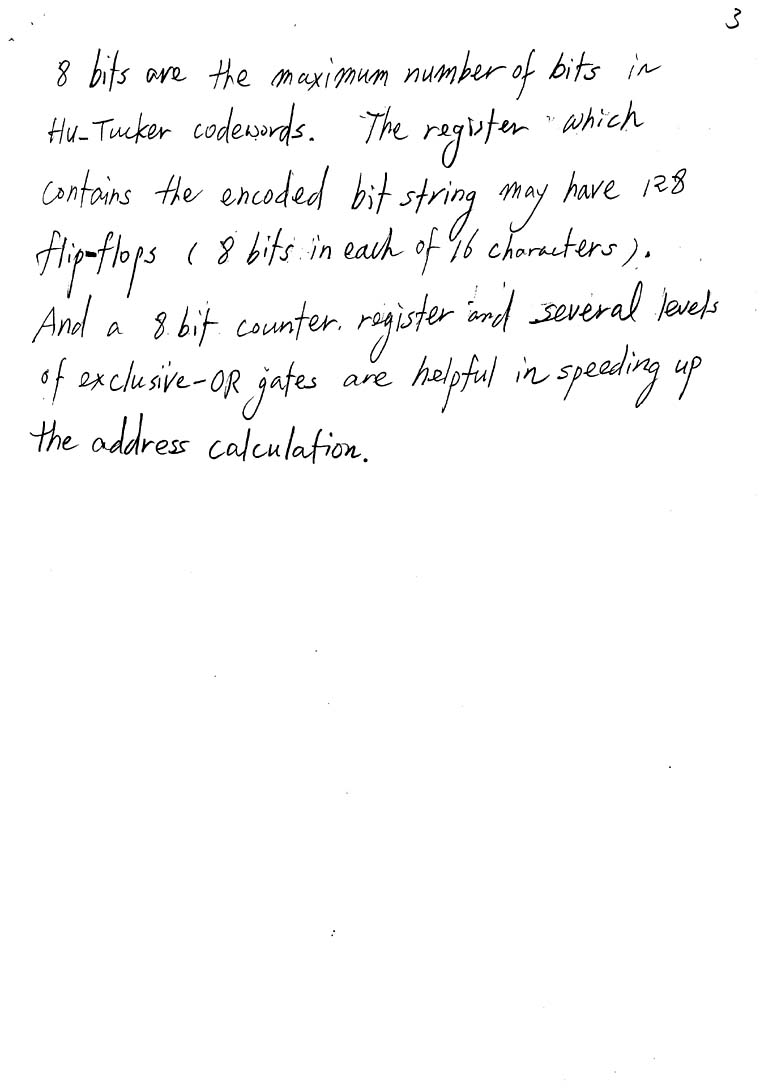 3
8 bits are the maximum number of bits in
Hu-Tucker codewords. The register which
contains the encoded bit string may have 128
flip-flops ( 8 bits in each of 16 characters ).
And a 8 bit counter register and several levels
of exclusive-OR gates are helpful in speeding up
the address calculation.